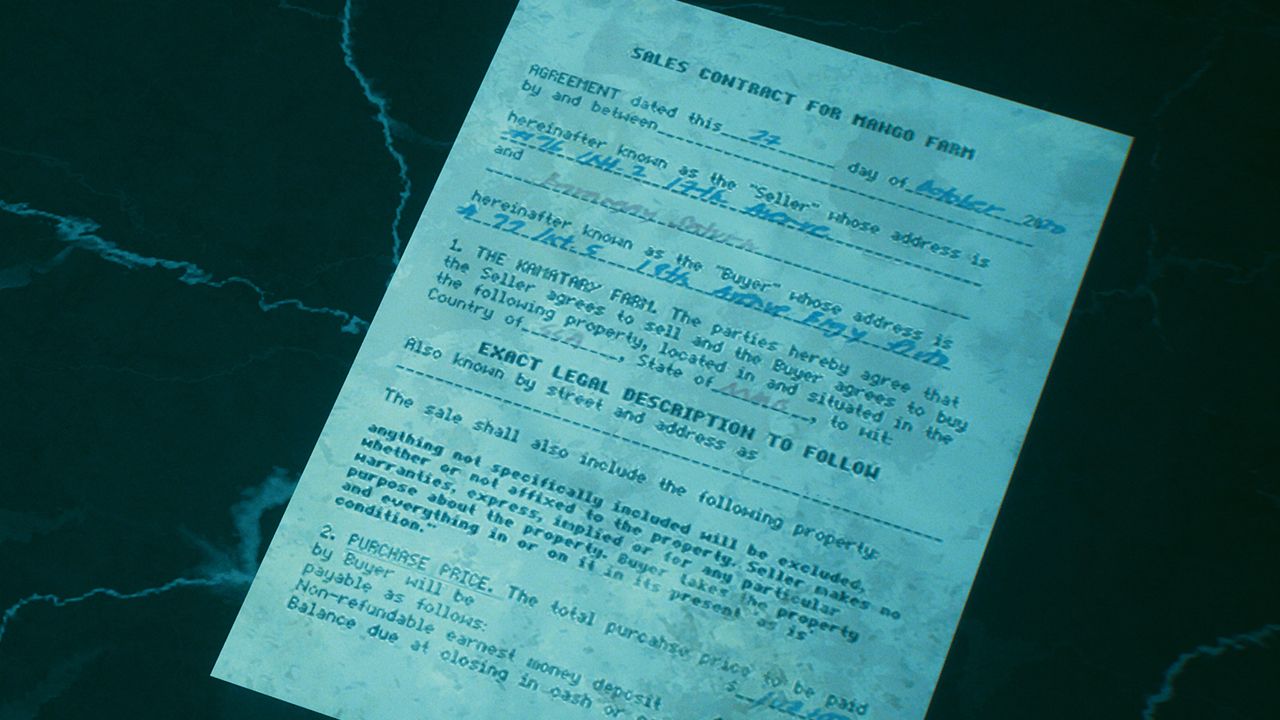 SALES CONTRACT FOR MANGO FARM
AGREEMENT dated this 27 day of October 2020
by and between
hereinafter known as the "Seller" whose address is
17th Avenue
and
hereinafter known as the "Buyer" whose address is
18th Avenue
1. THE KAMATARY FARM. The parties hereby agree that
the Seller agrees to sell and the Buyer agrees to buy
the following property, located in and situated in the
Country of , State of , to wit:
EXACT LEGAL DESCRIPTION TO FOLLOW
Also known by street and address as
The sale shall also include the following property:
anything not specifically included will be excluded,
whether or not affixed to the property. Seller makes no
warranties, express, implied or for any particular
purpose about the property. Buyer takes the property
and everything in or on it in its present "as is
condition."
2. PURCHASE PRICE. The total purcahse price to be paid
by Buyer will be $
payable as follows:
Non-refundable earnest money deposit
Balance due at closing in cash or